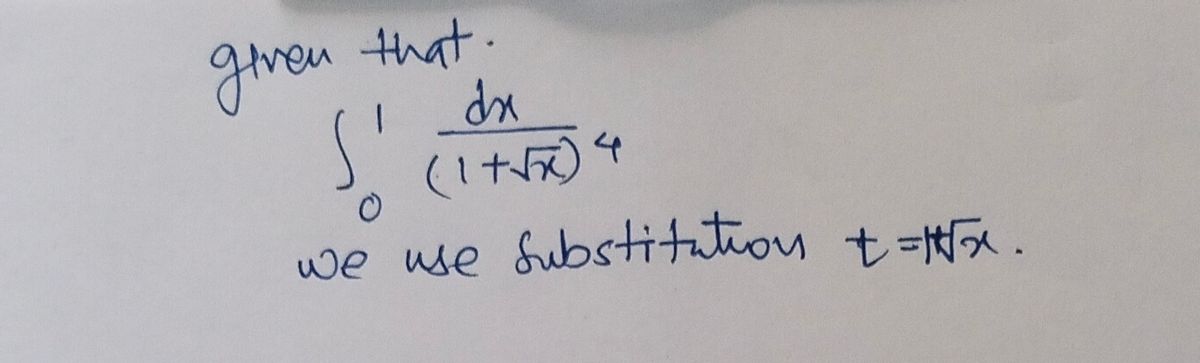 given that.
∫₀¹ dx / (1+√x)⁴
we use substitution t = 1+√x.